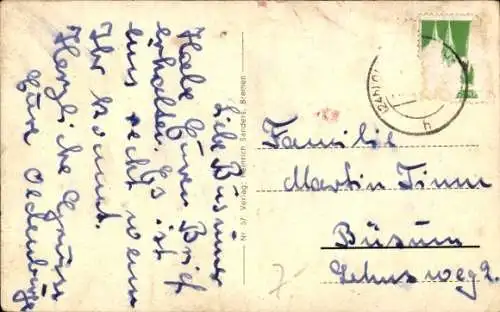 Liebe Büsumer
Habe Euren Brief
erhalten. Es ist
uns recht wenn
Ihr kommt.
Herzliche Grüße
Eure Oldenburger
Nr. 37 Verlag: Heinrich Sanders, Bremen
Familie
Martin Timm
Büsum
Lehnsweg 2.